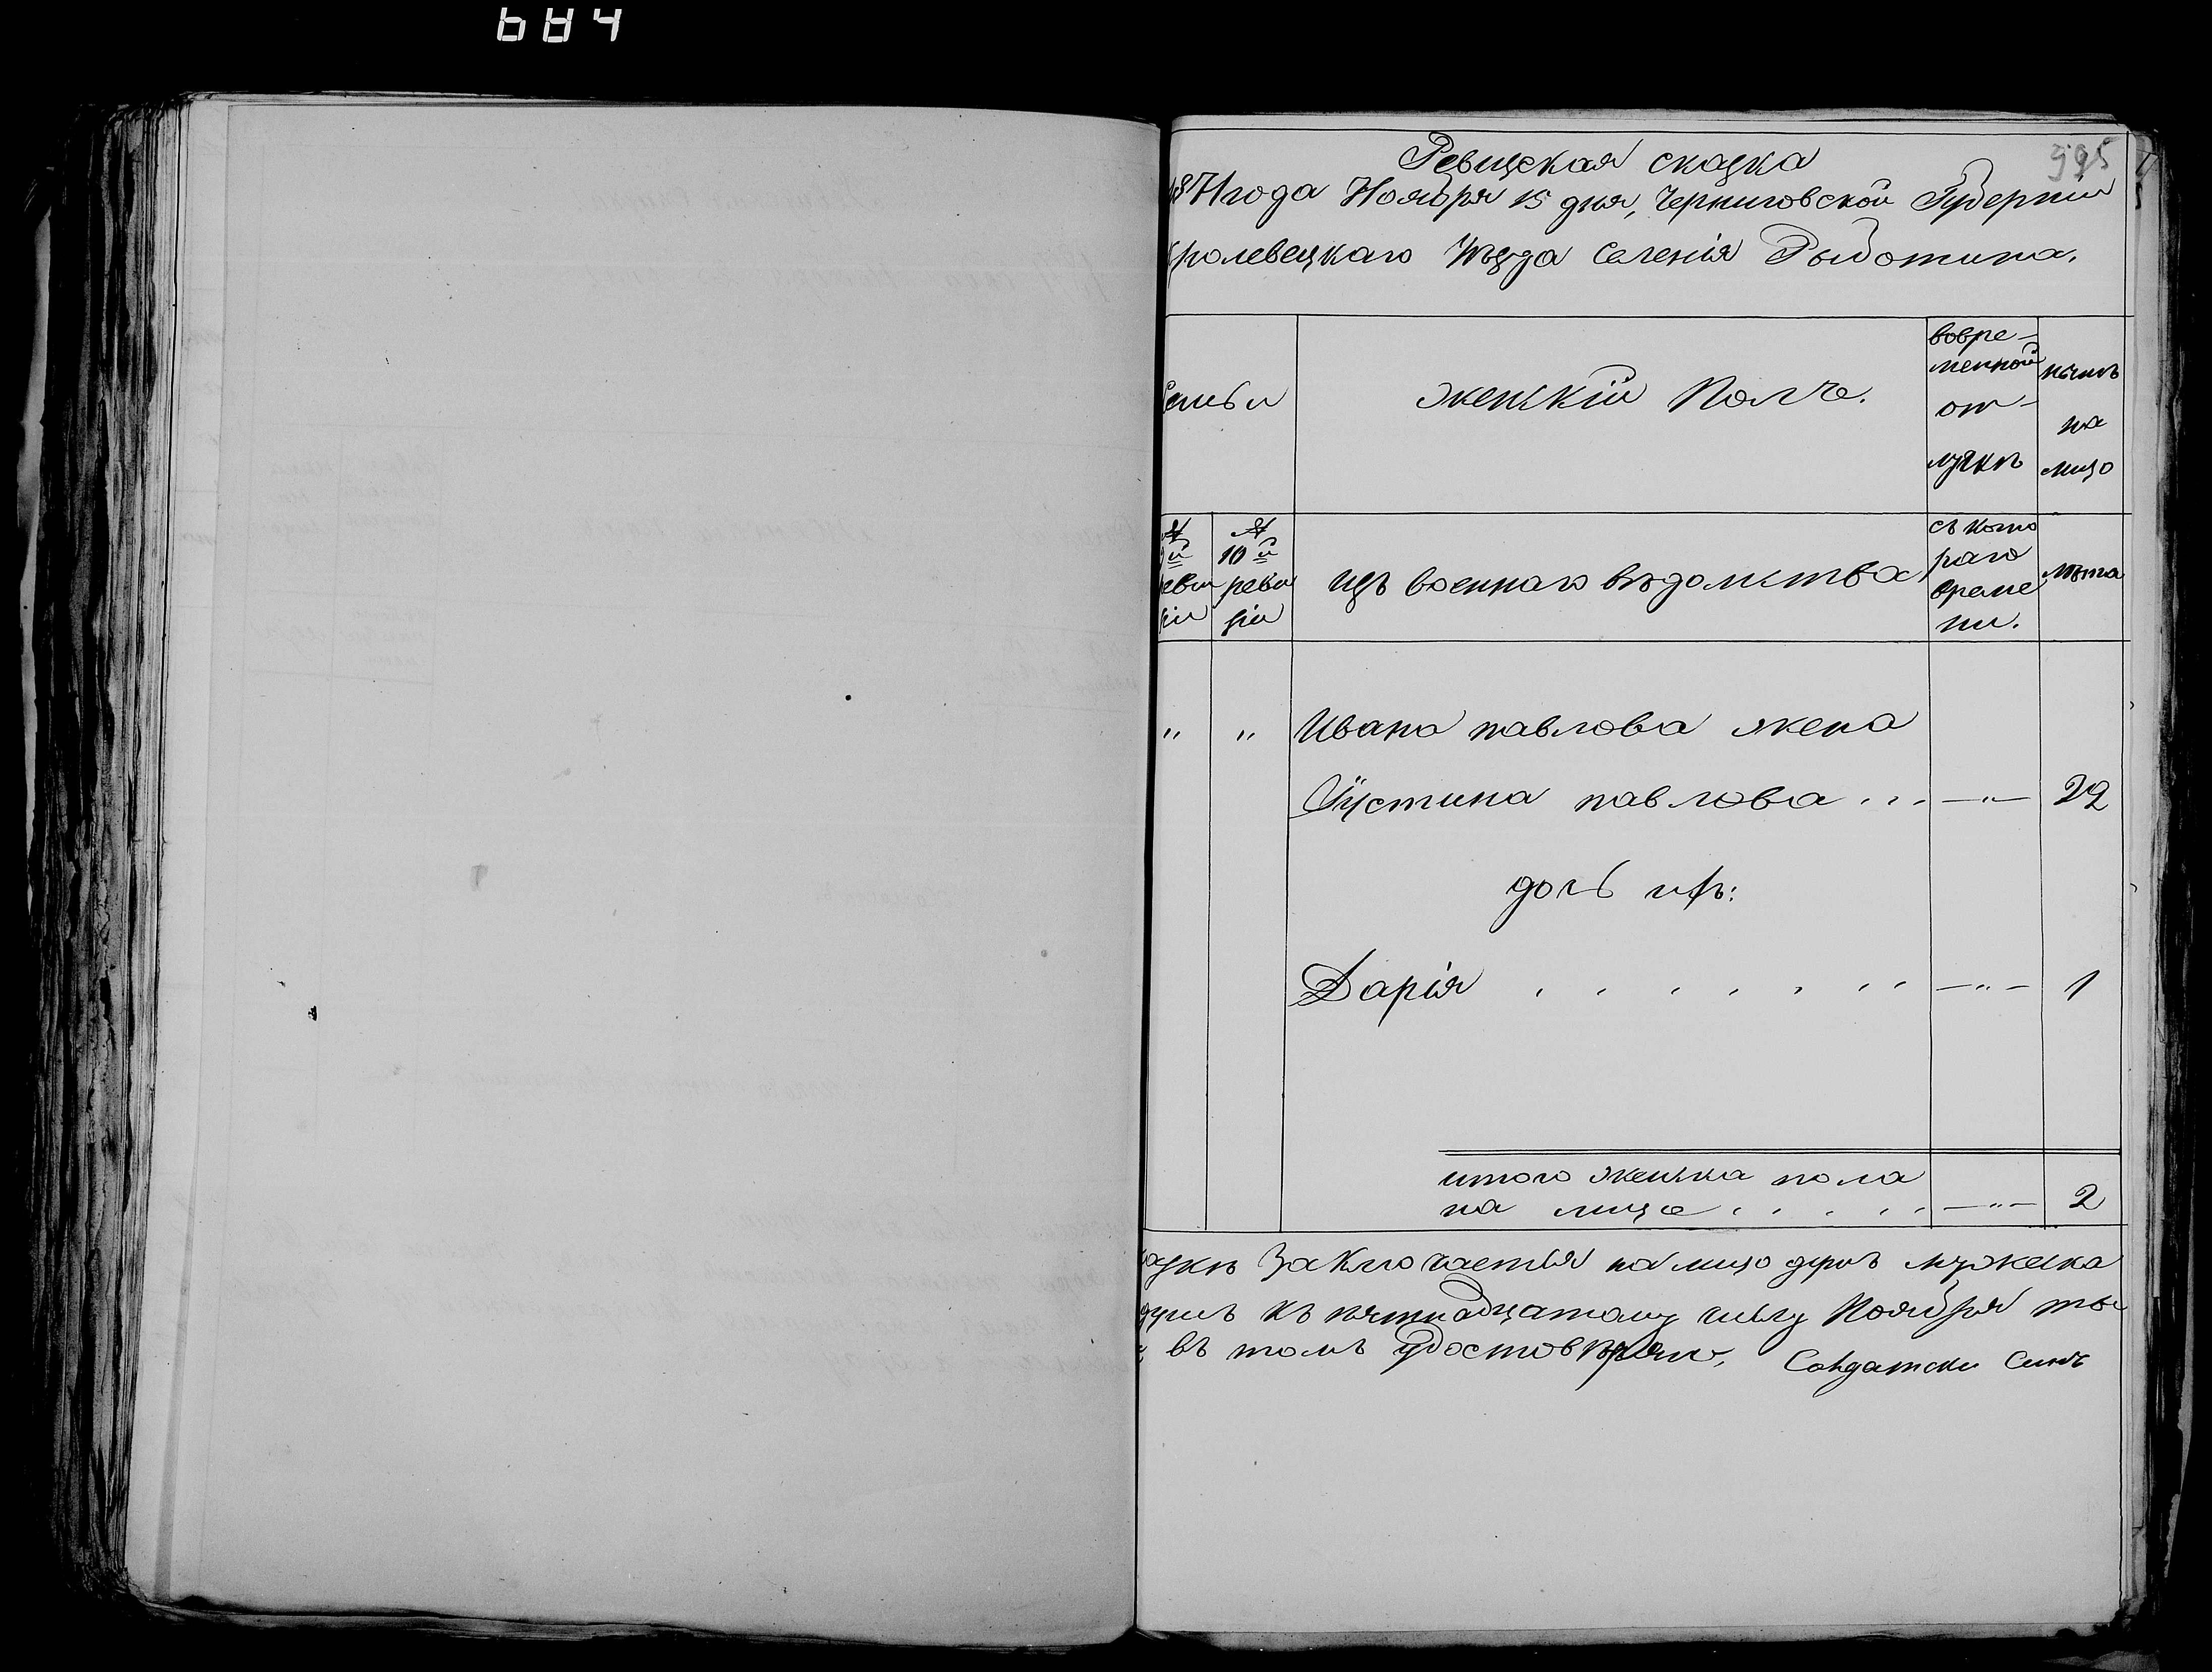 684
395
Ревизская сказка
1871 года Ноября 15 дня, Черниговской Губерніи
кролевецкаго Уѣзда Селенія Рыботина.
Семьи
женскій Полъ.
вовре-
менной
от-
лучкѣ
нынѣ
на
лицо
№
й
реви
зіи
№
10й
реви
зіи
изъ военнаго вѣдомства
съ кото
раго
време
ни.
лѣта
" " Ивана павлова жена
Іустина павлова . . . —"— 22
дочь ихъ:
Дарія . . . . . . . . —"— 1
итого женска пола
на лице . . . . . . —"— 2
заключается на лицо мужеска
душъ къ пятнадцатому числу Ноября ты
въ томъ удостовѣряю, Солдатски Сынъ